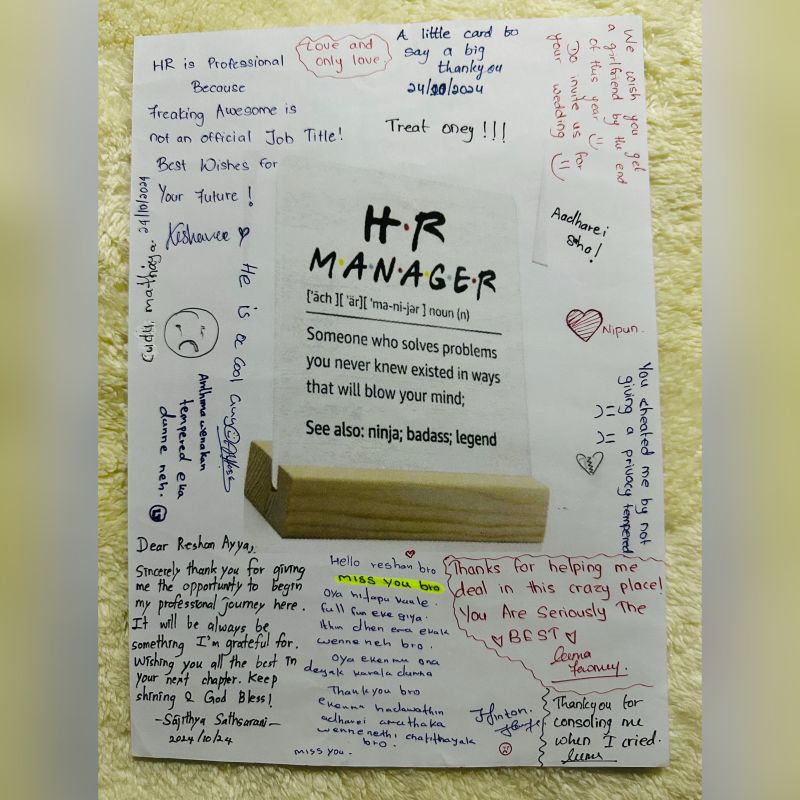 HR is Professional
Because
Freaking Awesome is
not an official Job Title!
Best Wishes for
Your Future!
Keshavee
Love and
only love
A little card to
say a big
thankyou
24/10/2024
Treat oney!!!
We wish you get
a girlfriend by the end
of this year
Do invite us for
your wedding
Aadharei
sho!
Nipun.
You cheated me by not
giving a privacy tempered
24/10/2024
He is a cool guy
Anthima wenakan
tempered eka
dunne neh.
H·R
M·A·N·A·G·E·R
['āch ][ 'är][ 'ma-ni-jər ] noun (n)
Someone who solves problems
you never knew existed in ways
that will blow your mind;
See also: ninja; badass; legend
Dear Reshan Ayya,
Sincerely thank you for giving
me the opportunity to begin
my professional journey here.
It will be always be
something I'm grateful for.
Wishing you all the best in
your next chapter. Keep
shining & God Bless!
-Sajithya Sathsarani-
2024/10/24
Hello reshan bro
miss you bro
Oya hitapu kaale
full fun eke giya.
Ithin dhen ema ekak
wenne neh bro.
Oya ekenma ona
deyak karala dunna
Thankyou bro
ekenma hadawathin
adharei amuthaka
wennenethi
bro.
miss you.
Thanks for helping me
deal in this crazy place!
You Are Seriously The
BEST
Thankyou for
consoling me
when I cried.